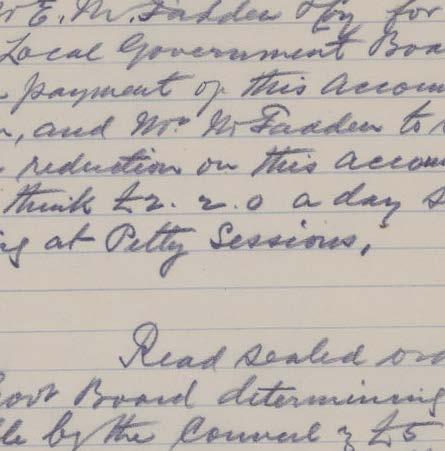 E. McFadden Soy for
Local Government Boa
payment of this accou
, and Mr. McFadden to
reduction on this accou
think £2. 2. 0 a day s
ng at Petty Sessions,
Read sealed ord
Govt Board determining
le by the Council of £5